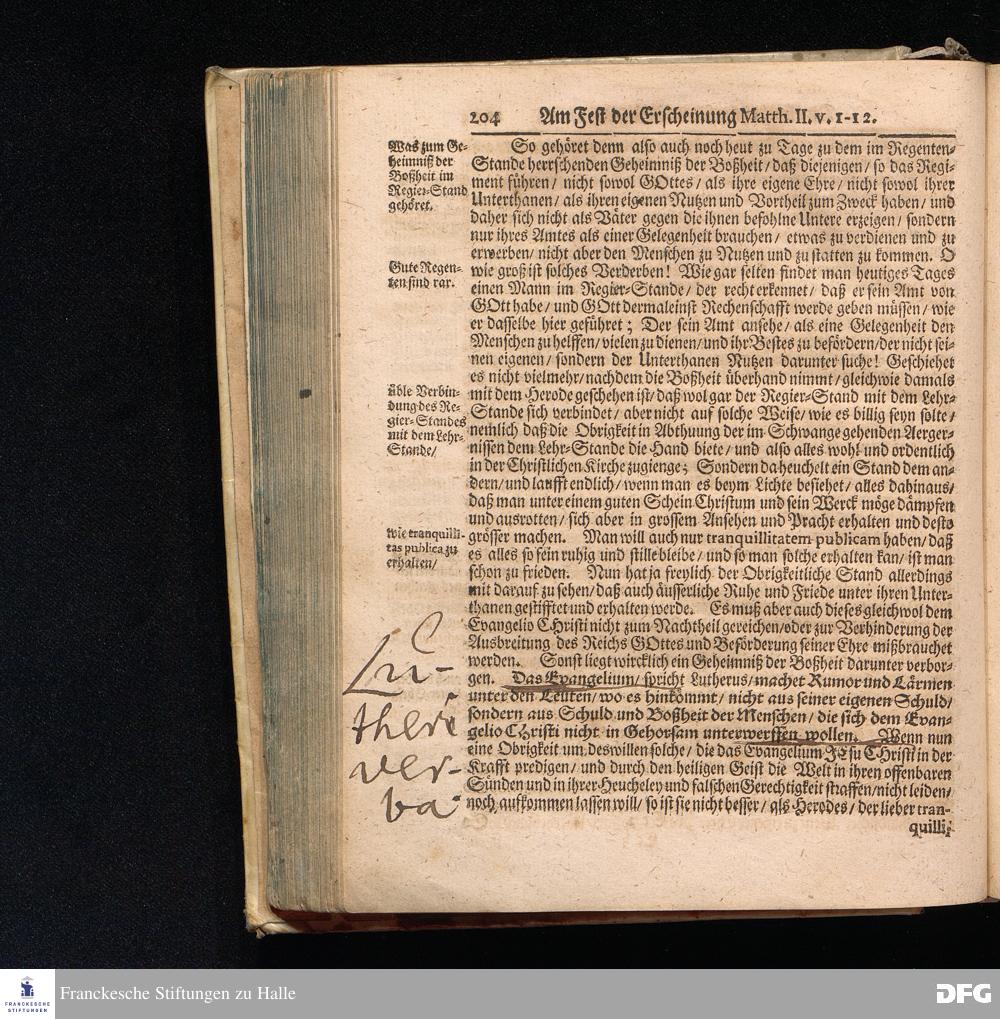 204 Am Fest der Erscheinung Matth. II. v. 1-12.
Was zum Ge-
heimniß der
Boßheit im
Regier-Stand
gehöret.
So gehöret denn also auch noch heut zu Tage zu dem im Regenten-
Stande herrschenden Geheimniß der Boßheit/ daß diejenigen/ so das Regi-
ment führen/ nicht sowol GOttes/ als ihre eigene Ehre/ nicht sowol ihrer
Unterthanen/ als ihren eigenen Nutzen und Vortheil zum Zweck haben/ und
daher sich nicht als Väter gegen die ihnen befohlne Untere erzeigen/ sondern
nur ihres Amtes als einer Gelegenheit brauchen/ etwas zu verdienen und zu
erwerben/ nicht aber den Menschen zu Nutzen und zu statten zu kommen. O
Gute Regen-
ten sind rar.
wie groß ist solches Verderben! Wie gar selten findet man heutiges Tages
einen Mann im Regier-Stande/ der recht erkennet/ daß er sein Amt von
GOtt habe/ und GOtt dermaleinst Rechenschafft werde geben müssen/ wie
er dasselbe hier geführet; Der sein Amt ansehe/ als eine Gelegenheit den
Menschen zu helffen/ vielen zu dienen/ und ihr Bestes zu befördern/ der nicht sei-
nen eigenen/ sondern der Unterthanen Nutzen darunter suche! Geschiehet
es nicht vielmehr/ nachdem die Boßheit überhand nimmt/ gleichwie damals
üble Verbin-
dung des Re-
gier-Standes
mit dem Lehr-
Stande/
mit dem Herode geschehen ist/ daß wol gar der Regier-Stand mit dem Lehr-
Stande sich verbindet/ aber nicht auf solche Weise/ wie es billig seyn solte/
nemlich daß die Obrigkeit in Abthuung der im Schwange gehenden Aerger-
nissen dem Lehr-Stande die Hand biete/ und also alles wohl und ordentlich
in der Christlichen Kirche zugienge; Sondern da heuchelt ein Stand dem an-
dern/ und laufft endlich/ wenn man es beym Lichte besiehet/ alles dahinaus/
daß man unter einem guten Schein Christum und sein Werck möge dämpfen
und ausrotten/ sich aber in grossem Ansehen und Pracht erhalten und desto
wie tranquilli-
tas publica zu
erhalten/
grösser machen. Man will auch nur tranquillitatem publicam haben/ daß
es alles so fein ruhig und stille bleibe/ und so man solche erhalten kan/ ist man
schon zu frieden. Nun hat ja freylich der Obrigkeitliche Stand allerdings
mit darauf zu sehen/ daß auch äusserliche Ruhe und Friede unter ihren Unter-
thanen gestifftet und erhalten werde. Es muß aber auch dieses gleichwol dem
Evangelio CHristi nicht zum Nachtheil gereichen/ oder zur Verhinderung der
Ausbreitung des Reichs GOttes und Beförderung seiner Ehre mißbrauchet
werden. Sonst liegt wircklich ein Geheimniß der Boßheit darunter verbor-
gen. Das Evangelium/ spricht Lutherus/ machet Rumor und Lärmen
unter den Leuten/ wo es hinkömmt/ nicht aus seiner eigenen Schuld/
sondern aus Schuld und Boßheit der Menschen/ die sich dem Evan-
gelio CHristi nicht in Gehorsam unterwerffen wollen. Wenn nun
eine Obrigkeit um deswillen solche/ die das Evangelium JEsu CHristi in der
Krafft predigen/ und durch den heiligen Geist die Welt in ihren offenbaren
Sünden und in ihrer Heucheley und falschen Gerechtigkeit straffen/ nicht leiden/
noch aufkommen lassen will/ so ist sie nicht besser/ als Herodes/ der lieber tran-
quilli-
Lu-
theri
ver-
ba
FRANCKESCHE
STIFTUNGEN
Franckesche Stiftungen zu Halle
DFG